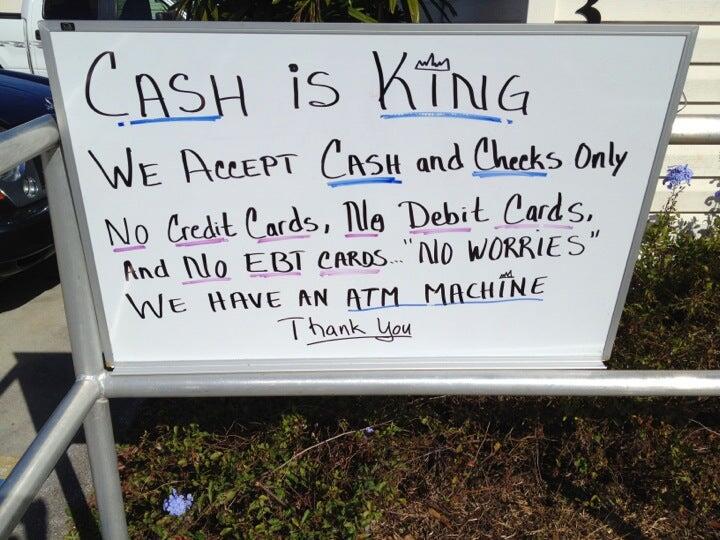 CASH is KING
WE ACCEPT CASH and Checks Only
No Credit Cards, No Debit Cards,
And No EBT CARDS... "NO WORRIES"
WE HAVE AN ATM MACHINE
Thank You